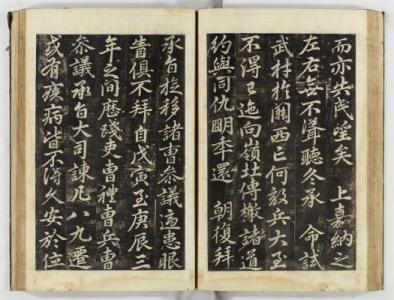 而亦失民望矣 上嘉納之
左右無不聳聽久承 命試
武材於關西亡何敵兵大至
不得已迤向嶺北傳檄諸道
約與同仇明年還 朝復拜
承旨旋移諸曹參議遘患眼
眚俱不拜自戊寅至庚辰三
年之間歷踐吏曹禮曹兵曹
參議承旨大司諫凡八九遷
或有疾病皆不得久安於位